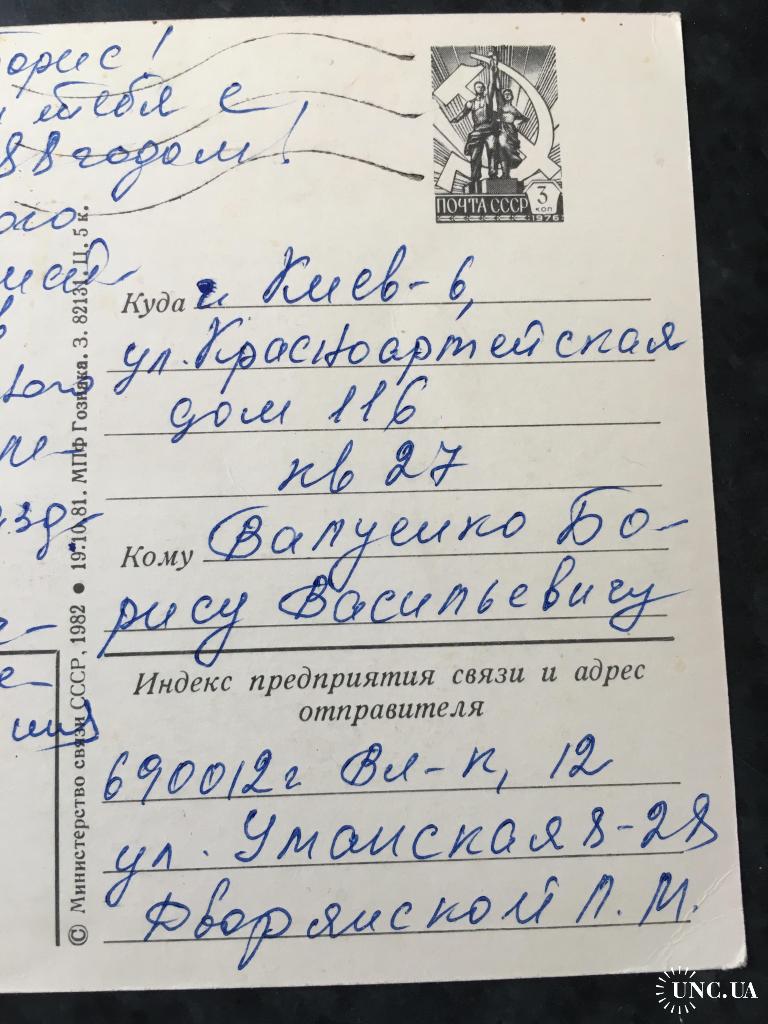 Борис!
тебя с
88 годом!
ПОЧТА СССР
3
коп
1976
ого
Куда г. Киев-6,
ул. Красноармейская
дом 116
кв 27
Кому
Бо-
рису Васильевичу
Индекс предприятия связи и адрес
отправителя
690012 г Вл-к, 12
ул. Уманская 8-28
Дворянской Л. М.
© Министерство связи СССР, 1982 ● 19.10.81. МПФ Гознака. З. 82131. Ц. 5 к.
UNC.UA